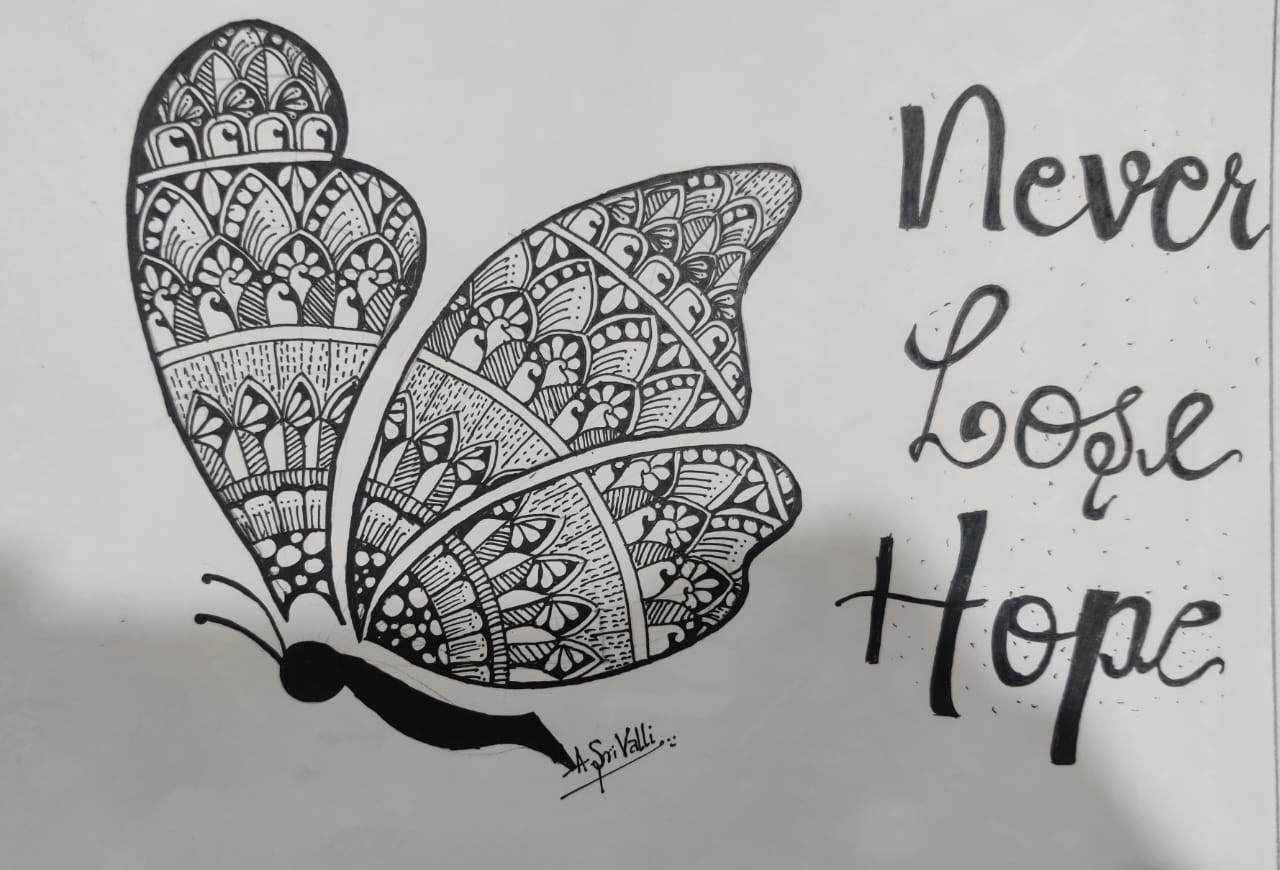 Never
Lose
Hope
A Sri Valli